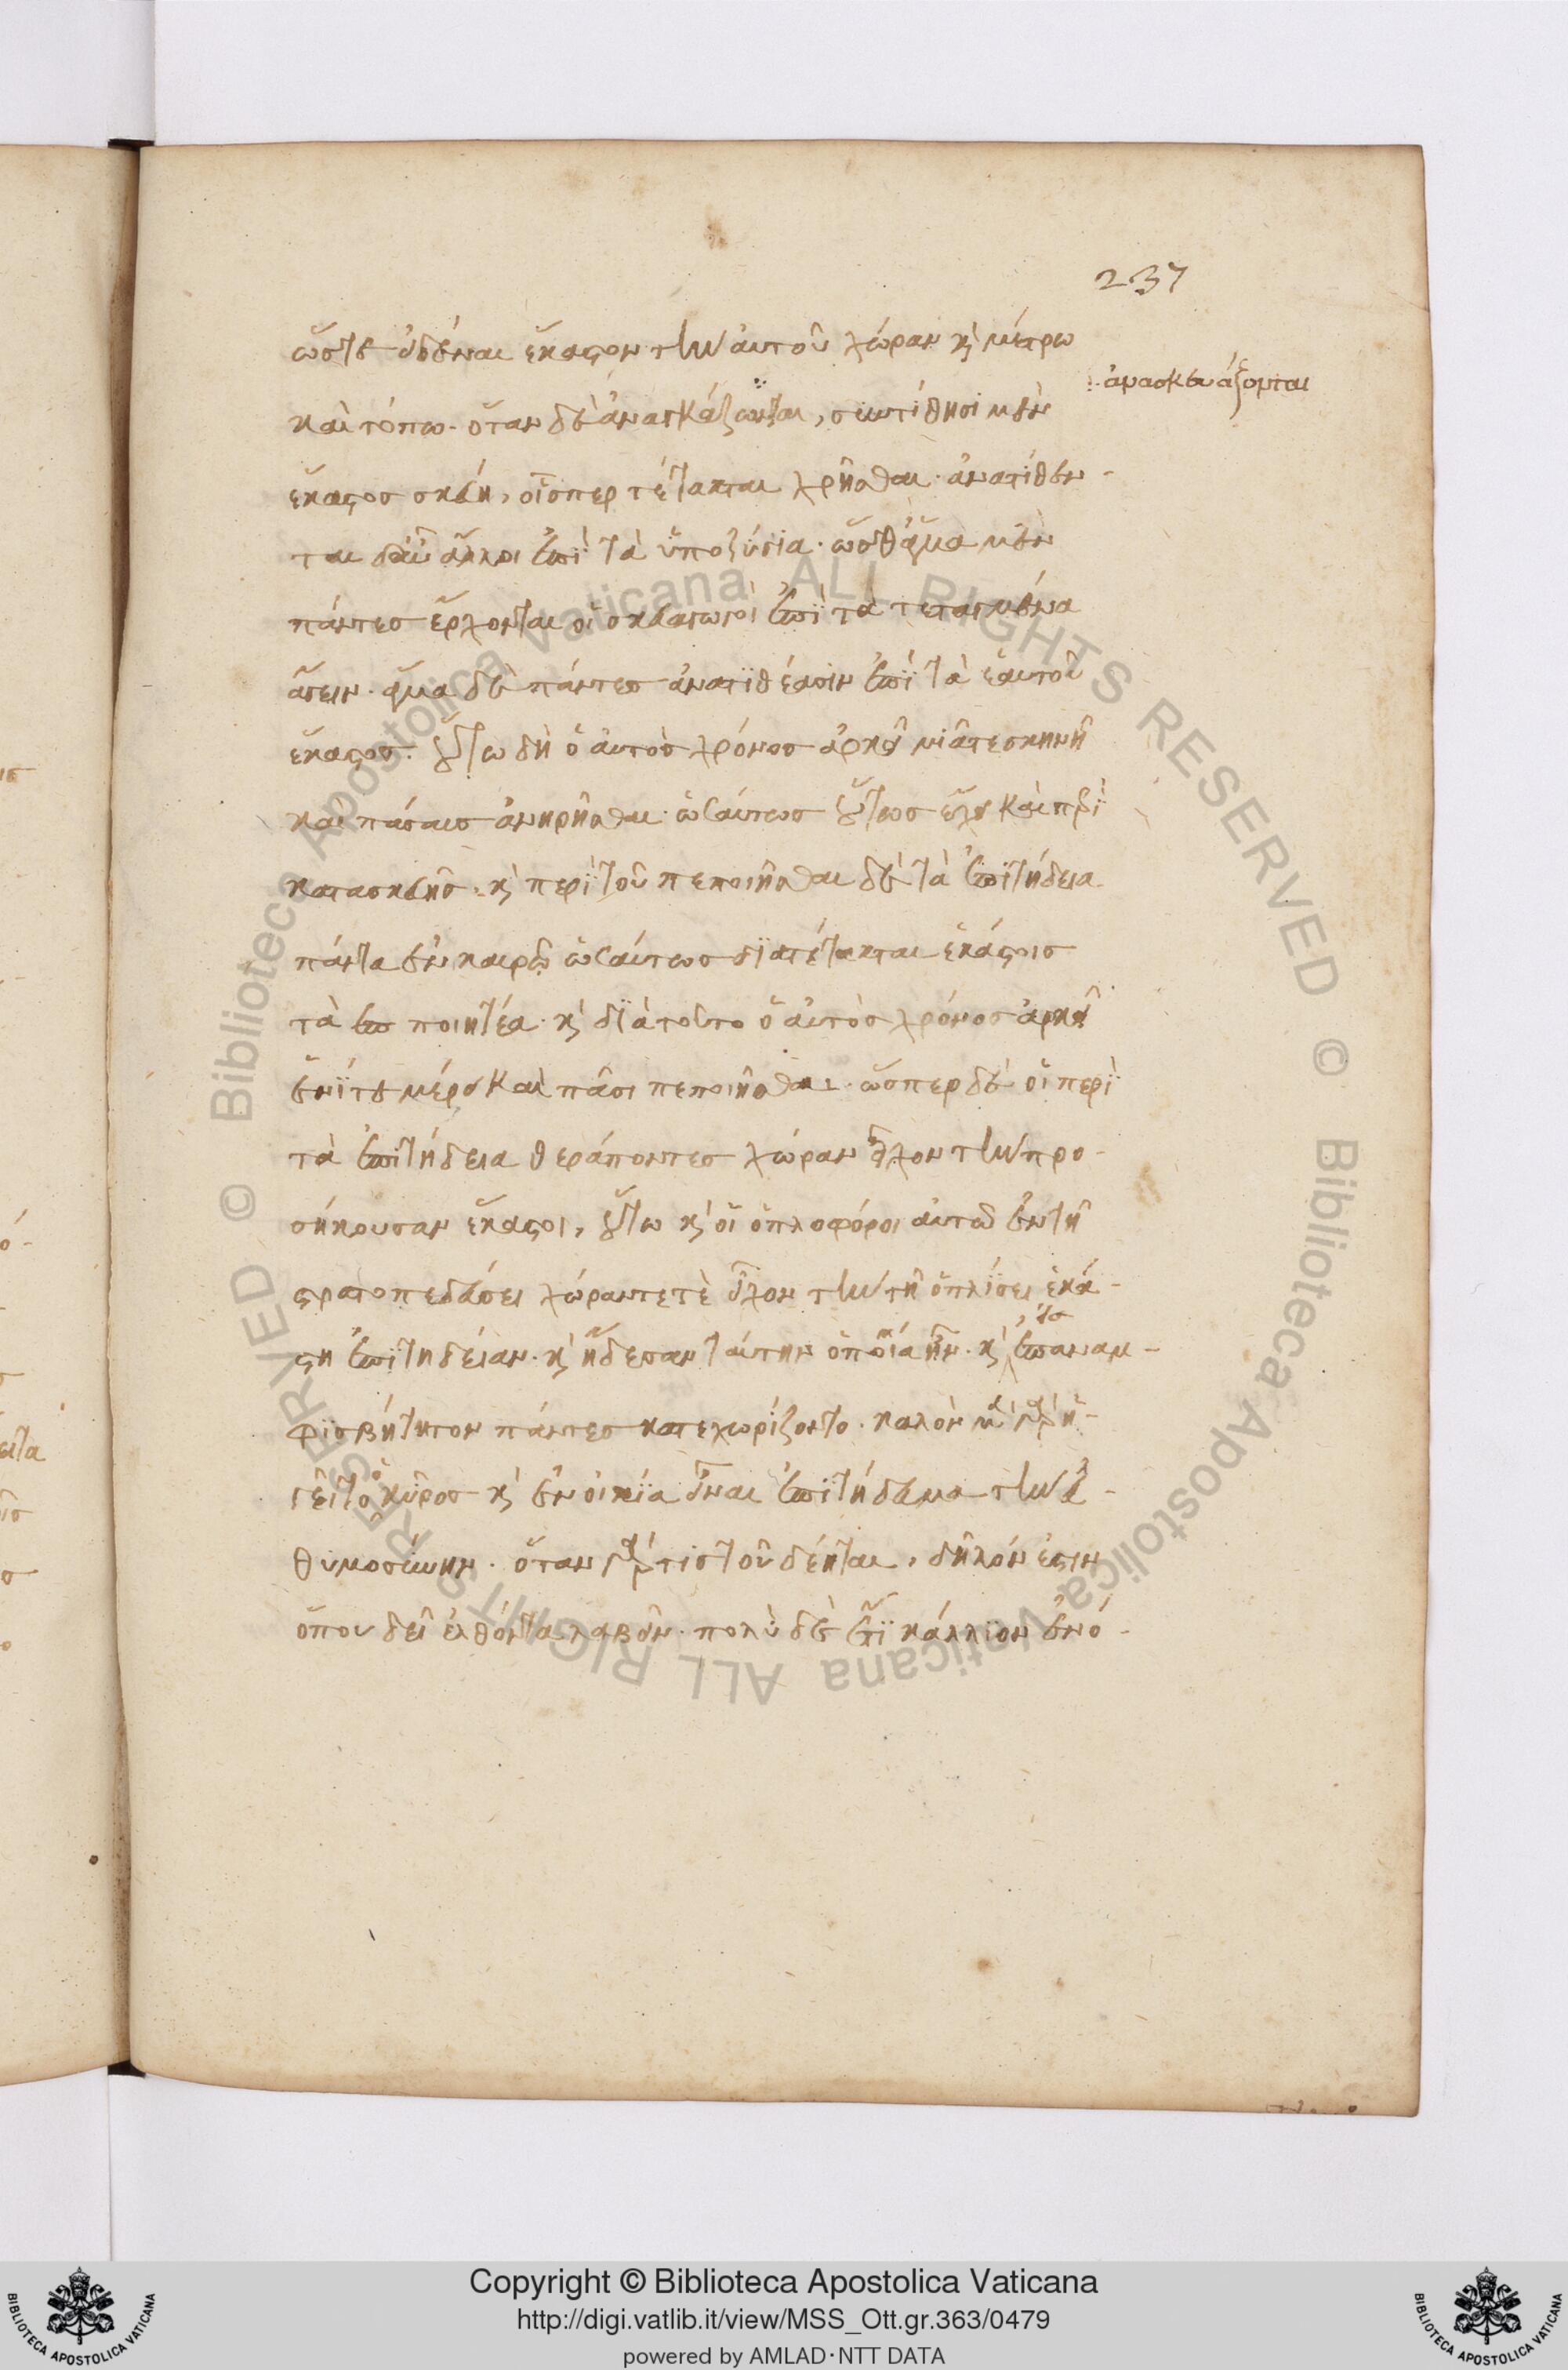 237
ὥστε εἰδέναι ἕκαστον τὴν αὐτοῦ χώραν κ̀ μέτρω
ἀνασκευάζονται
καὶ τόπω. ὅταν δὲ ἀνασκάζωνται, συντίθησι μὲν
ἕκαστος σκεύη, οἷσπερ τέτακται χρῆσθαι. ἀνατίθεν-
ται δ' αὖ ἄλλοι ἐπὶ τὰ ὑποζύγια. ὥσθ' ἅμα μὲν
πάντες ἔρχονται οἱ σκευαγωγοὶ ἐπὶ τὰ τεταγμένα
ἄγειν. ἅμα δὲ πάντες ἀνατιθέασιν ἐπὶ τὰ ἑαυτοῦ
ἕκαστος. οὕτω δὴ ὁ αὐτὸς χρόνος ἀρκεῖ μιᾶ τε σκηνῆ
καὶ πάσαις ἀνηρῆσθαι. ὡσαύτως οὕτως ἔχει καὶ περὶ
κατασκευῆς. κ̀ περὶ τοῦ πεποιῆσθαι δὲ τὰ ἐπιτήδεια
πάντα ἐν καιρῶ ὡσαύτως διατέτακται ἑκάστοις
τὰ ποιητέα. κ̀ διὰ τοῦτο ὁ αὐτὸς χρόνος ἀρκεῖ
ἑνί τε μέρει καὶ πᾶσι πεποιῆσθαι. ὥσπερ δὲ οἱ περὶ
τὰ ἐπιτήδεια θεράποντες χώραν εἶχον τὴν προ-
σήκουσαν ἕκαστοι, οὕτω κ̀ οἱ ὁπλοφόροι αὐτῶ ἐν τῆ
στρατοπεδεύσει χώραν τε τὲ εἶχον τὴν τῆ ὁπλίσει ἑκά-
στη ἐπιτηδείαν. κ̀ ἤδεσαν ταύτην ὁποία ἦν. κ̀ ἐπ' ἀναμ-
φισβήτητον πάντες κατεχωρίζοντο. καλὸν μὲν γὰρ ἡ-
γεῖτο ὁ κῦρος κ̀ ἐν οἰκία εἶναι ἐπιτήδευμα τὴν εὐ-
θυμοσύνην. ὅταν γάρ τις του δέηται, δῆλόν ἐστιν
ὅπου δεῖ ἐλθόντα λαβεῖν. πολὺ δὲ ἔτι κάλλιον ἐνό-
Copyright © Biblioteca Apostolica Vaticana
http://digi.vatlib.it/view/MSS_Ott.gr.363/0479
powered by AMLAD·NTT DATA